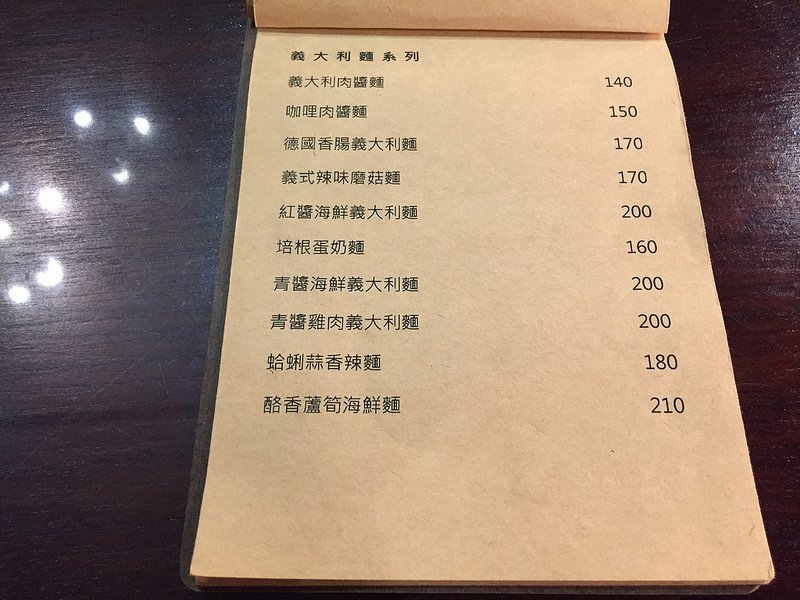 義大利麵系列
義大利肉醬麵 140
咖哩肉醬麵 150
德國香腸義大利麵 170
義式辣味磨菇麵 170
紅醬海鮮義大利麵 200
培根蛋奶麵 160
青醬海鮮義大利麵 200
青醬雞肉義大利麵 200
蛤蜊蒜香辣麵 180
酪香蘆筍海鮮麵 210